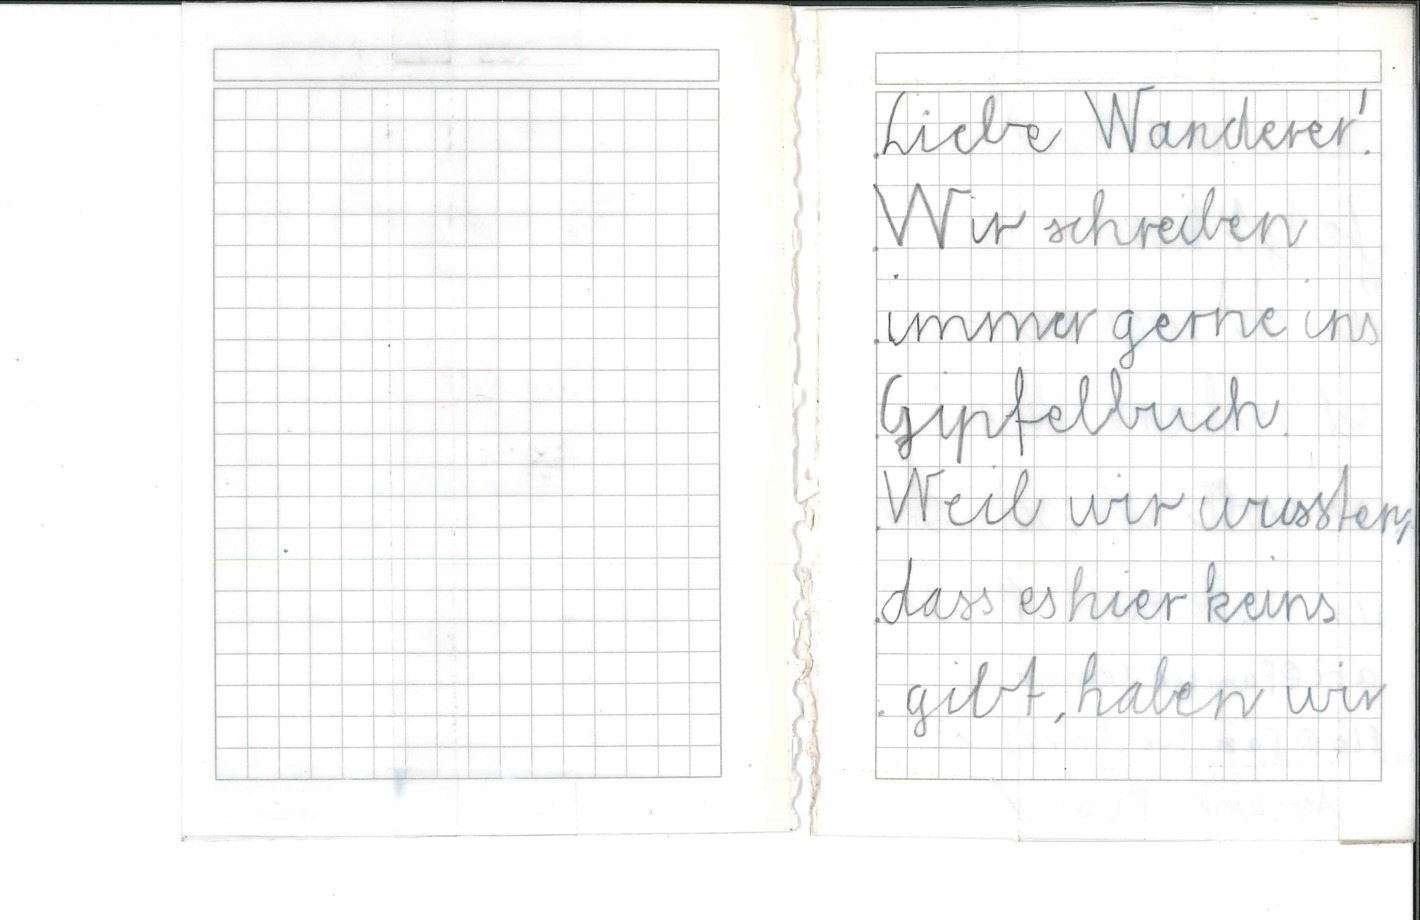 Liebe Wanderer!
Wir schreiben
immer gerne ins
Gipfelbuch.
Weil wir wussten,
dass es hier keins
gibt, haben wir